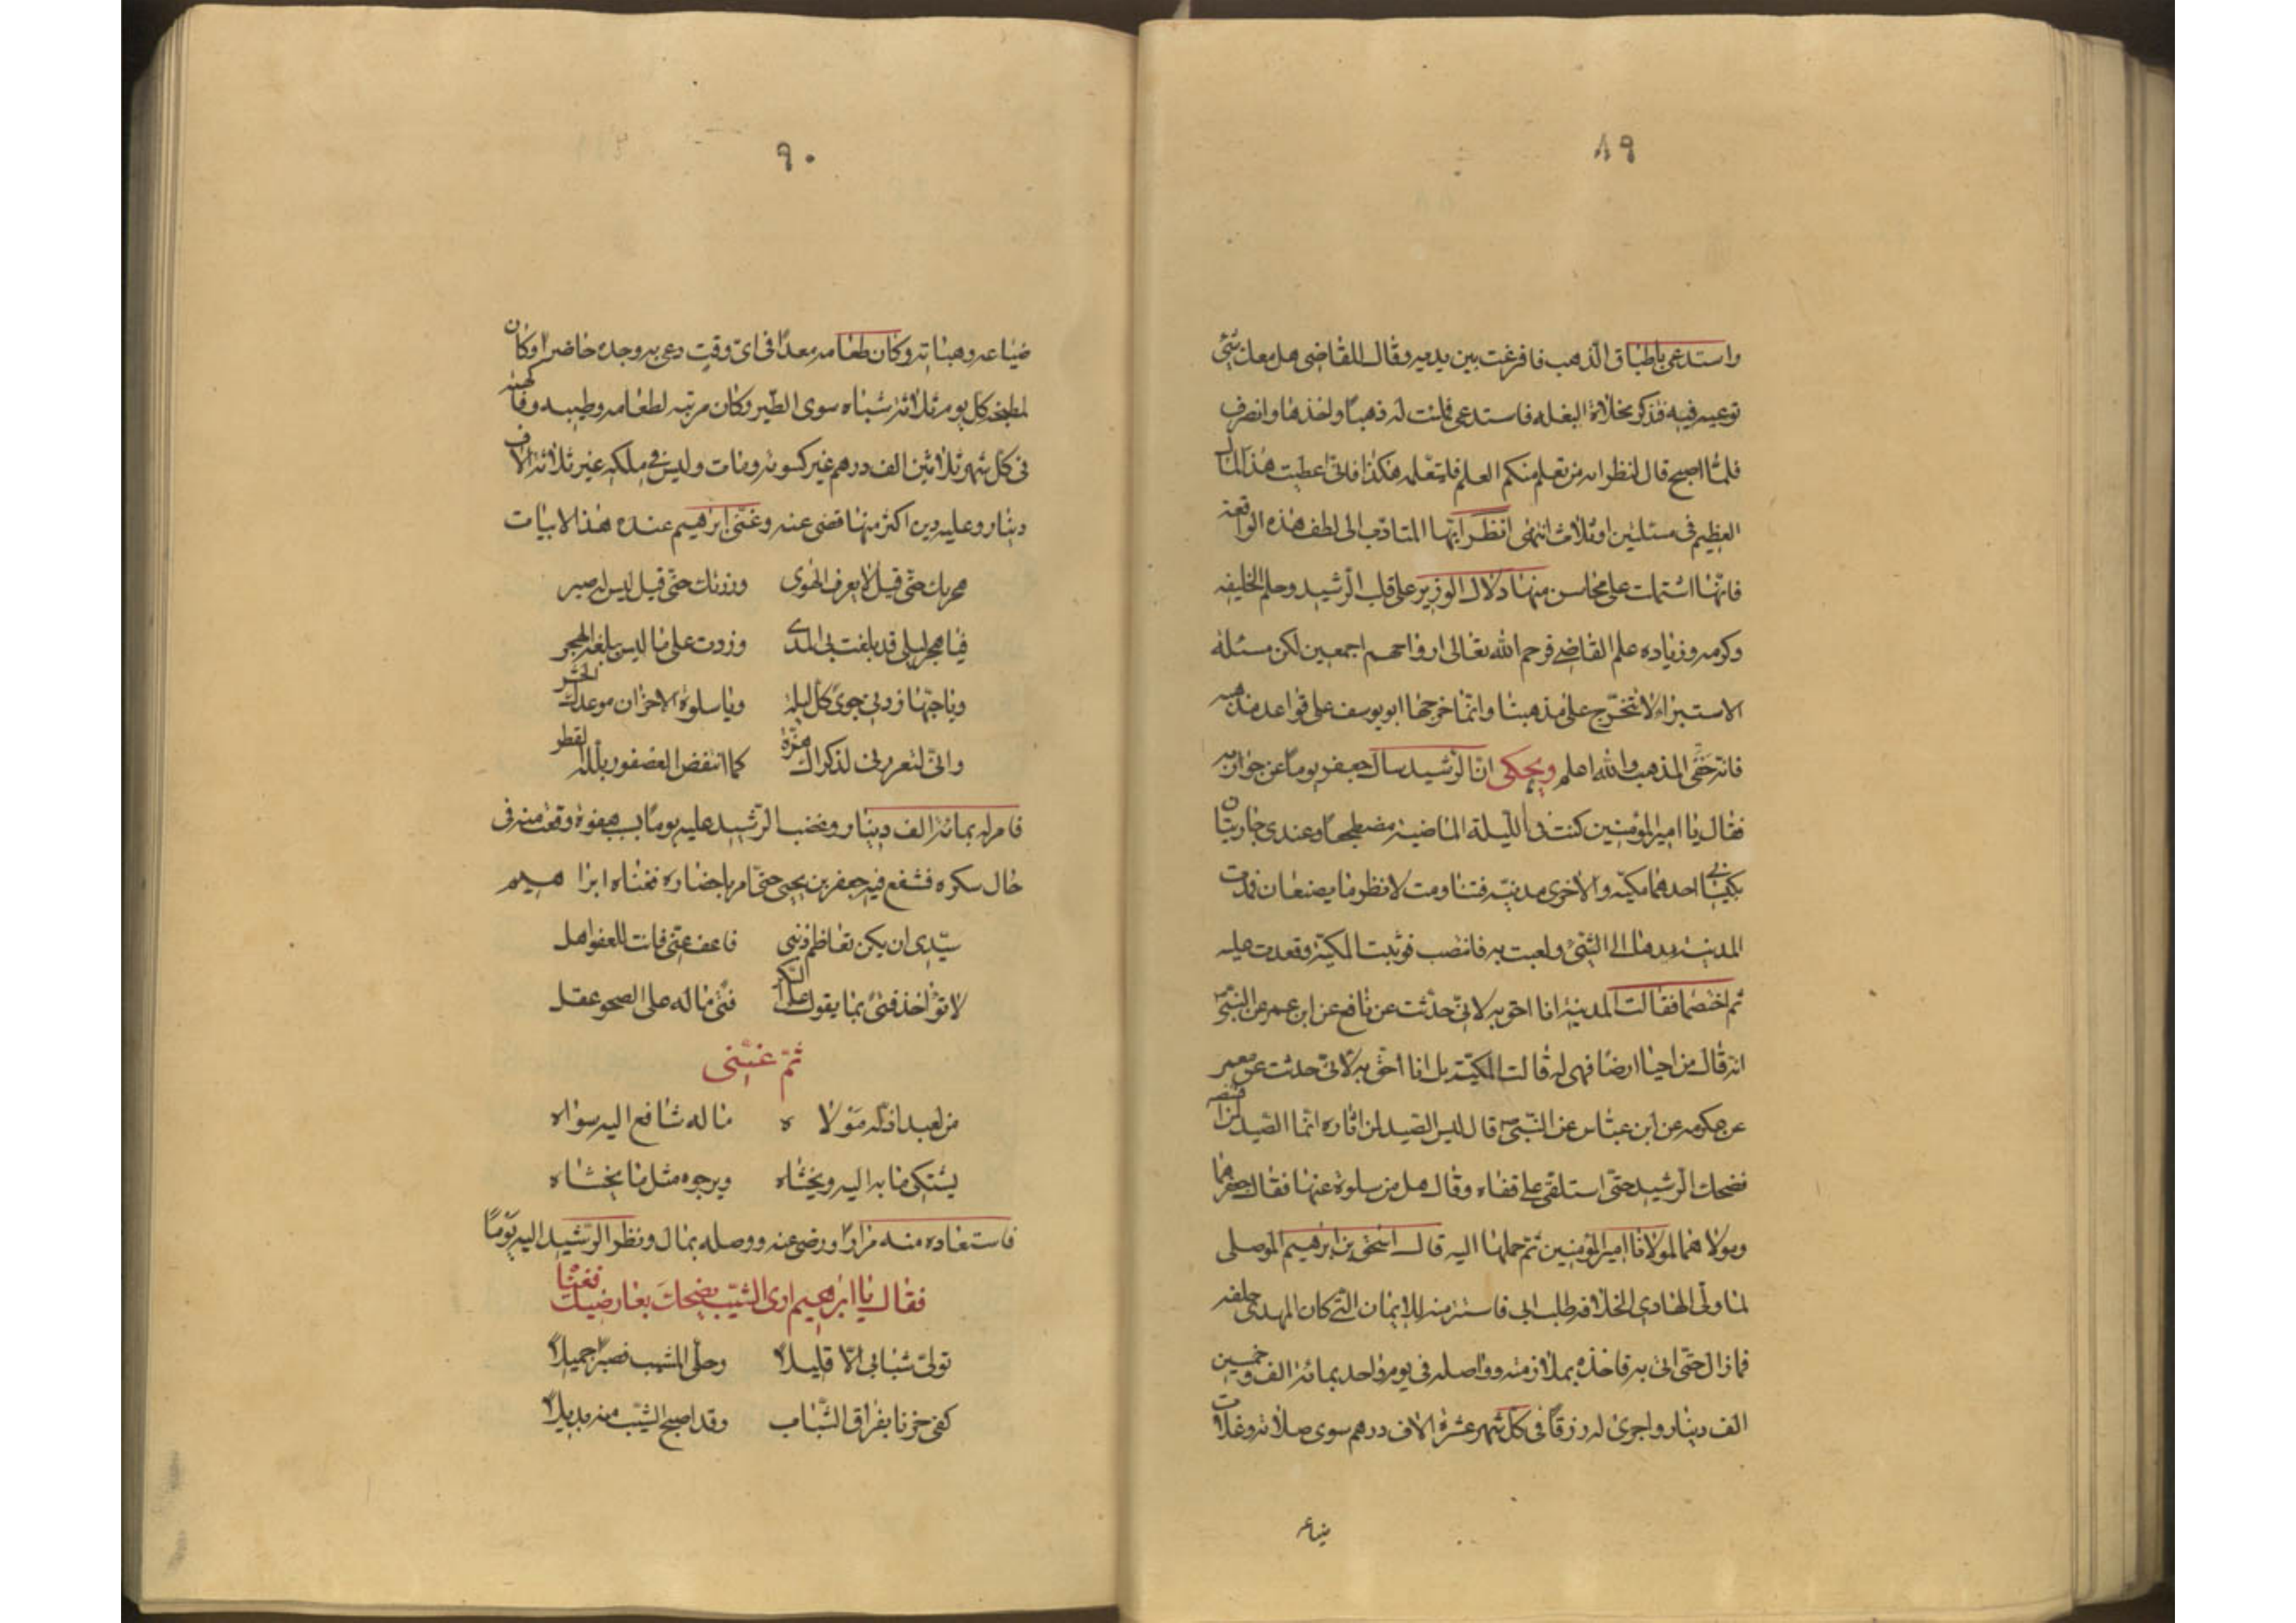 ٨٩
واستدعى باطباق الذهب فافرغت بين يديه وقال للقاضى هل معك شئ
توعيه فيه فذكر مخلاة البغله فاستدعى فلئت له ذهبًا واخذها وانصرف
فلمّا اصبح قال انظر انه من تعلم منكم العلم فليتعلمه هكذا فانى اعطيت هذا المال
العظيم فى مسئلتين او ثلاث انتهى انظر ايّها المتادّب الى لطف هذه الواقعة
فانّها اشتملت على محاسن منها دلال الوزير على قلب الرّشيد وحلم الخليفه
وكرمه وزياده علم القاضى فرحم الله تعالى ارواحهم اجمعين لكن مسئله
الاستبراء لا تتخرّج على مذهبنا وانّما خرجها ابو يوسف على قواعد مذهبه
فانه حنفى المذهب والله اعلم ويحكى انّ الرّشيد سال جعفر يومًا عن جواريه
فقال يا امير المؤمنين كنت فى الليلة الماضية مضطجعًا وعندى جاريتان
يكبسانى احدهما مكيّه والاخرى مدنيّه فتناومت لانظر ما يصنعان فمدّت
المدنيّة يدها الى الشّئ ولعبت به فانتصب فوثبت المكيّة وقعدت عليه
ثم اختصما فقالت المدنيّة انا احق به لانّى حدّثت عن نافع عن ابن عمر عن النّبىّ
انه قال من احيا ارضًا فهى له قالت المكيّة بل انا احقّ به لانّى حدثت عن معمر
عن عكرمه عن ابن عبّاس عن النّبىّ قال ليس الصّيد لمن اثاره انّما الصّيد لمن قنصه
فضحك الرّشيد حتّى استلقى على قفاه وقال هل من سلوة عنها فقال جعفر هما
ومولاهما لمولانا امير المؤمنين ثم حملها اليه قال اسحق بن ابرهيم الموصلى
لما ولّى الهادى الخلافه طلب ابى فاستتر منه للايمان التّى كان المهدى حلفه
فما زال حتّى اتى به فاخذه بملازمته وواصله فى يوم واحد بمائة الف وخمسين
الف دينار واجرى له رزقًا فى كل شهر عشرة الاف درهم سوى صلاته وغلات
ضياعه
٩٠
ضياعه وهباته وكان طعامه معدًّا فى اىّ وقت دعى به وجده حاضرا وكان
لمطبخه كل يوم ثلاثة شياه سوى الطّير وكان مرتبه لطعامه وطيبه وفاكهته
فى كل شهر ثلاثين الف درهم غير كسوته ومات وليس فى ملكه غير ثلاثة الاف
دينار وعليه دين اكثر منها قضى عنه وغنّى ابرهيم عنده هذا الابيات
هجرتك حتّى قيل لا يعرف الهوى وزرتك حتّى قيل ليس له صبر
فيا هجر ليلى قد بلغت بى المدى وزدت على ما ليس يبلغه الهجر
ويا حبّها زدنى جوى كل ليلة ويا سلوة الاحزان موعدك الحشر
وانّى لتعرونى لذكراك هزّة كما انتفض العصفور بلّله القطر
فامر له بمائة الف دينار وغضب الرّشيد عليه يومًا بسبب هفوة وقعت منه فى
حال سكره فشفع فيه جعفر بن يحيى حتّى امر باحضاره فغناه ابراهيم
سيّدى ان يكن تعاظم ذنبى فاعف عنّى فانت للعفو اهل
لا تؤاخذ فتى بما يقول على السّكر فتى ما له على الصحو عقل
ثمّ غنّنى
من لعبد اذلّه مولاه ما له شافع اليه سواه
يشتكى ما به اليه ويخشاه ويرجوه مثل ما يخشاه
فاستعاده منه مرارًا ورضى عنه ووصله بمال ونظر الرّشيد اليه يومًا
فقال يا ابرهيم ارى الشّيب يضحك بعارضيك فغنّا
تولّى شبابى الّا قليلا وحلّ المشيب فصبرًا جميلا
كفى حزنا بفراق الشّباب وقد اصبح الشّيب منه بديلا